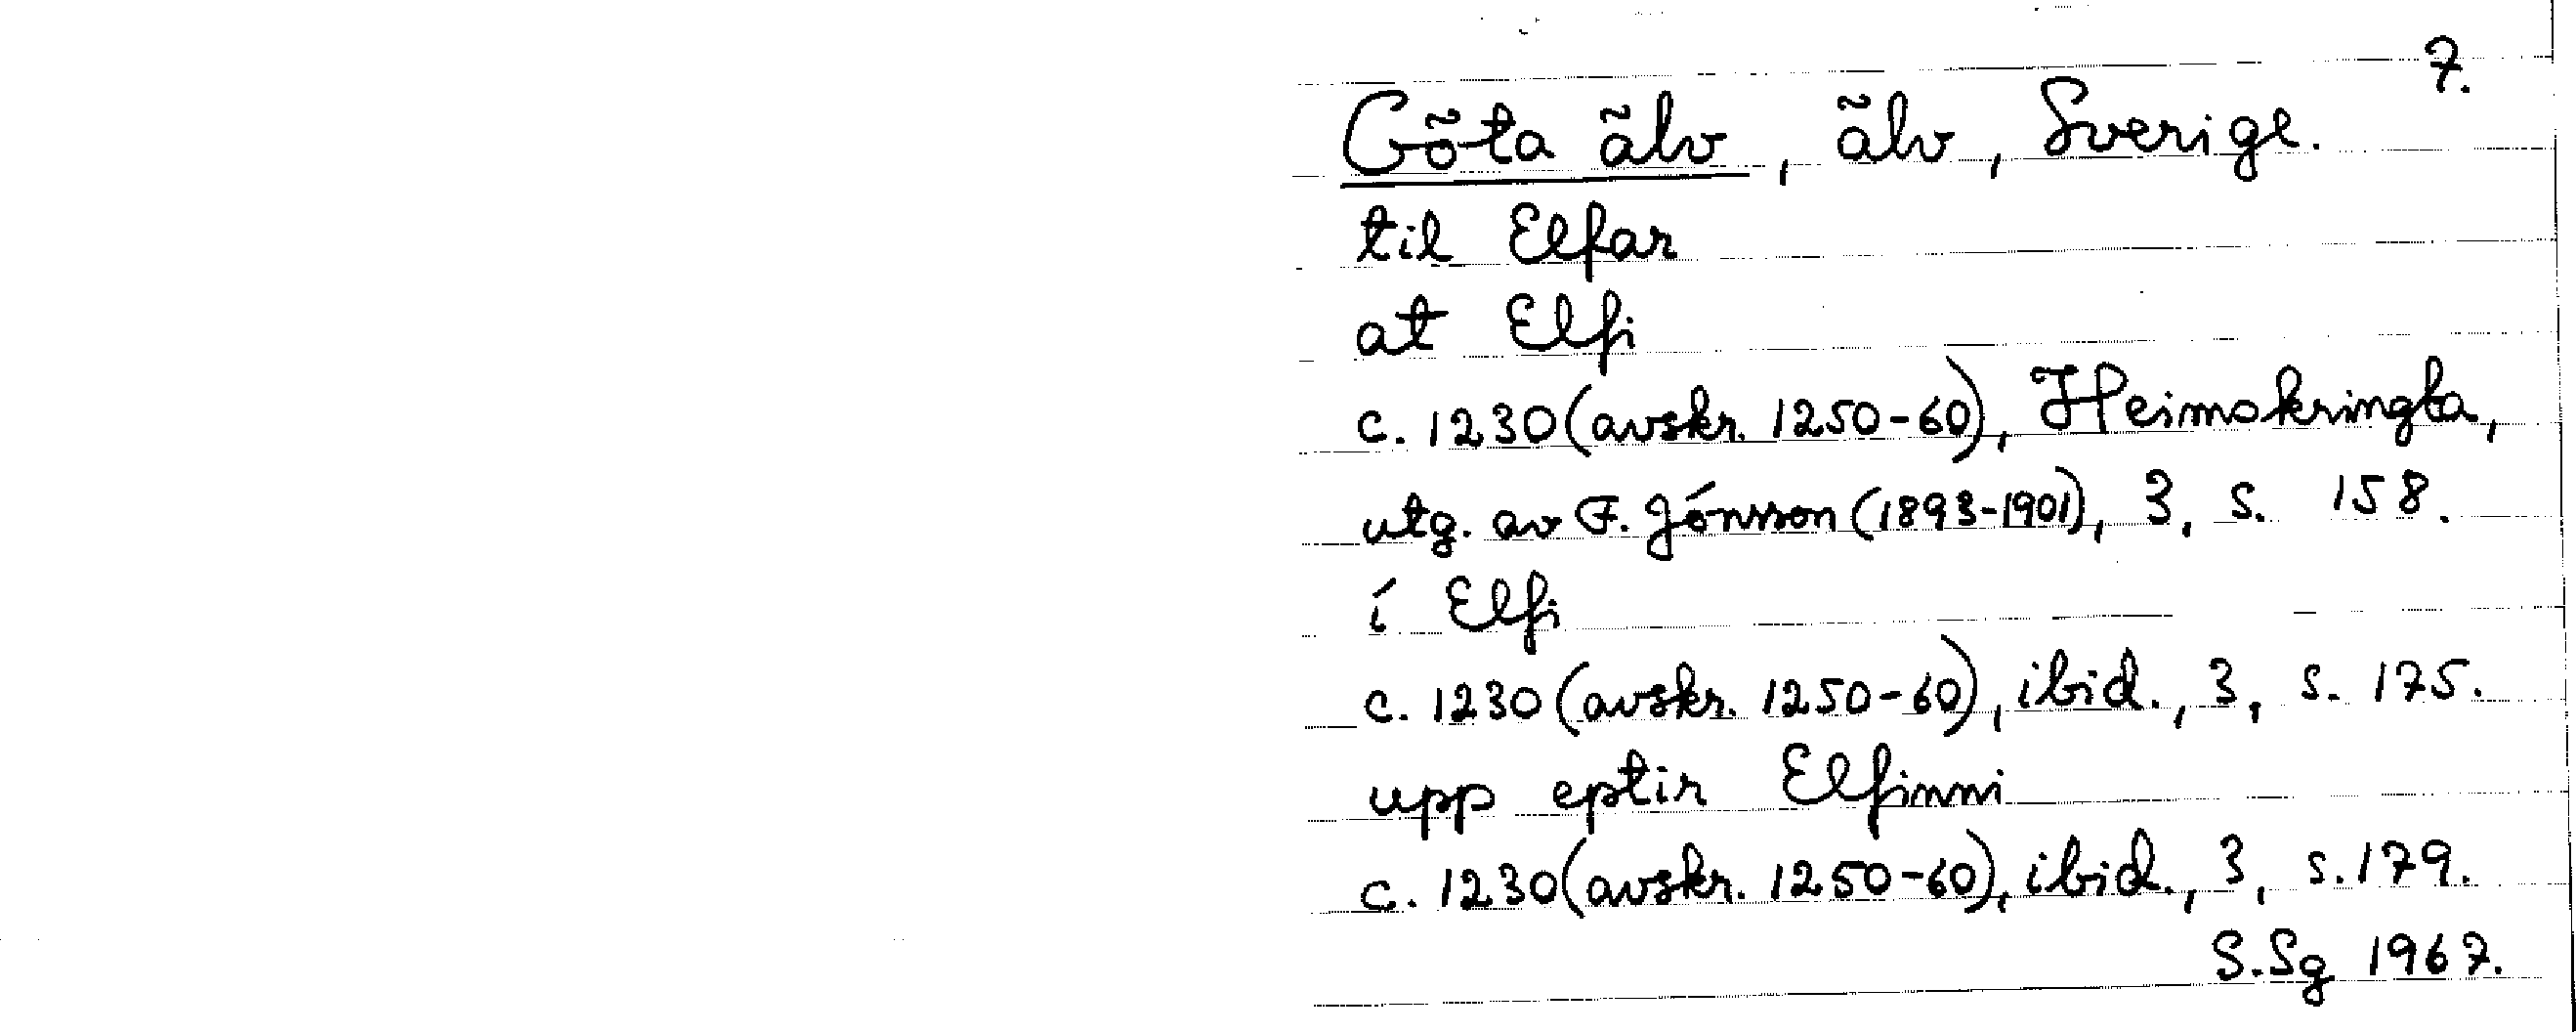 7.
Göta älv, älv, Sverige.
til Elfar
at Elfi
c. 1230 (avskr. 1250-60), Heimskringla,
utg. av F. Jónsson (1893-1901), 3, s. 158.
í Elfi
c. 1230 (avskr. 1250-60), ibid., 3, s. 175.
upp eptir Elfinni
c. 1230 (avskr. 1250-60), ibid., 3, s. 179.
S.Sg 1967.